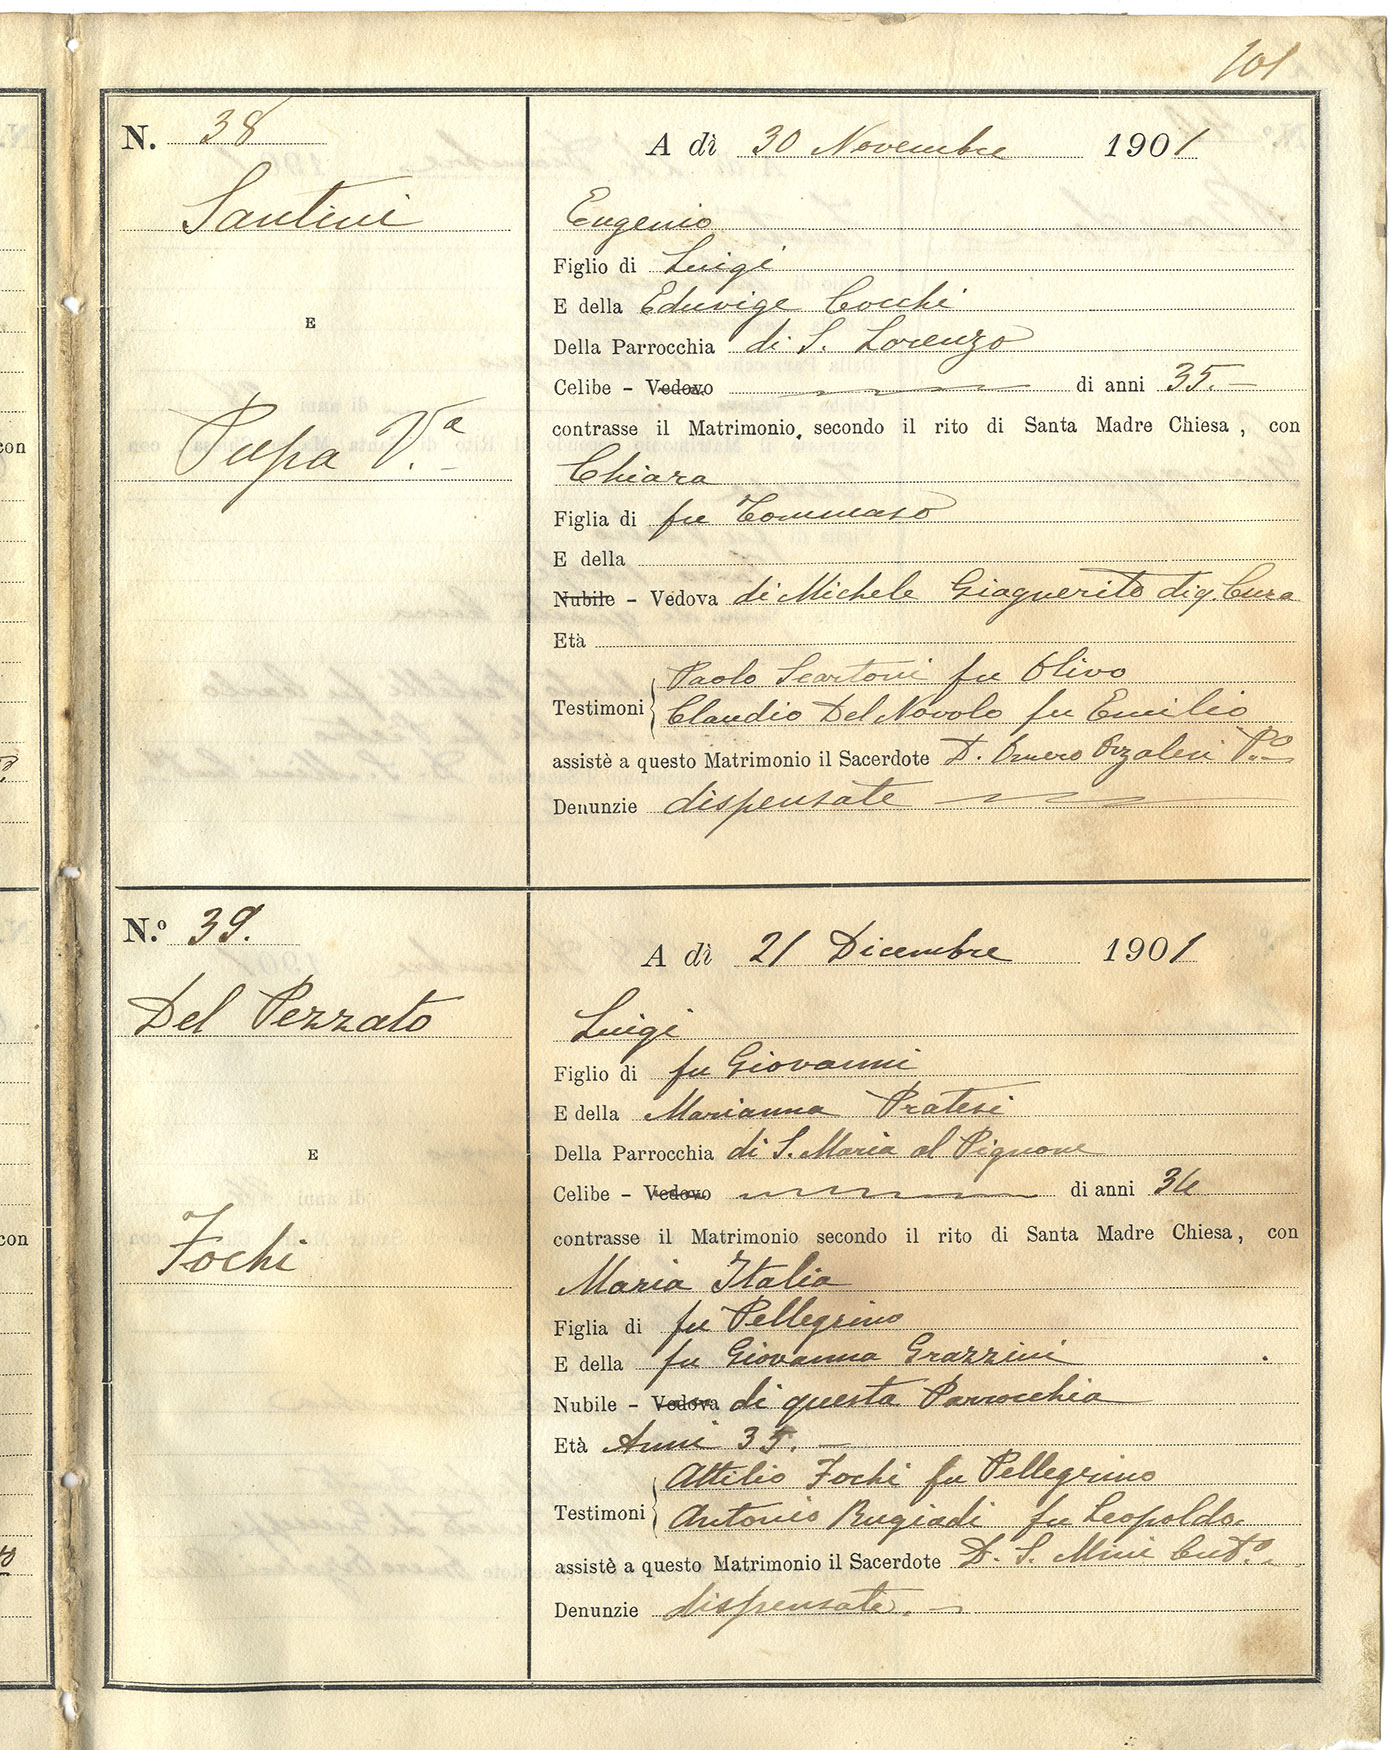 101
N. 38
A dì 30 Novembre 1901
Santini
E
Papa V.ª
Eugenio
Figlio di Luigi
E della Eduvige Cocchi
Della Parrocchia di S. Lorenzo
Celibe - Vedovo di anni 35.-
contrasse il Matrimonio, secondo il rito di Santa Madre Chiesa, con
Chiara
Figlia di fu Tommaso
E della
Nubile - Vedova di Michele Giaguerito di q. Cura
Età
Testimoni Paolo Scartoni fu Olivo
Claudio Del Novolo fu Emilio
assistè a questo Matrimonio il Sacerdote D. Omero Orzalesi P.º
Denunzie dispensate
N.º 39.
A dì 21 Dicembre 1901
Del Pezzato
E
Fochi
Luigi
Figlio di fu Giovanni
E della Marianna Pratesi
Della Parrocchia di S. Maria al Pignone
Celibe - Vedovo di anni 34
contrasse il Matrimonio secondo il rito di Santa Madre Chiesa, con
Maria Italia
Figlia di fu Pellegrino
E della fu Giovanna Grazzini
Nubile - Vedova di questa Parrocchia
Età Anni 35.-
Testimoni Attilio Fochi fu Pellegrino
Antonio Rugiadi fu Leopoldo.
assistè a questo Matrimonio il Sacerdote D. S. Mini
Denunzie dispensate.-
con
con